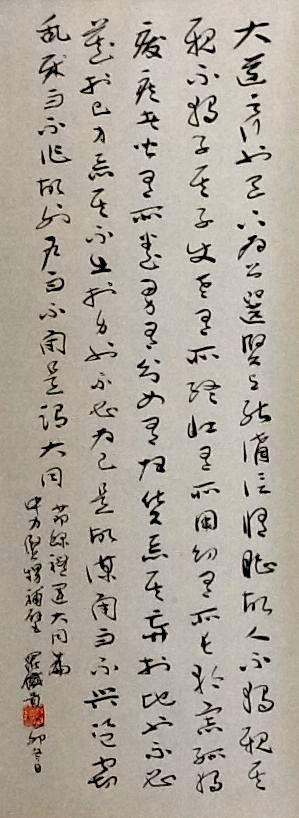 大道之行也天下為公選賢与能講信修睦故人不獨親其
親不獨子其子使老有所終壯有所用幼有所長矜寡孤獨
廢疾者皆有所養男有分女有歸貨惡其棄於地也不必
藏於己力惡其不出於身也不必為己是故謀閉而不興盜竊
亂賊而不作故外戶而不閉是謂大同
節錄禮運大同篇
中力賢甥補壁 羅 卯冬日